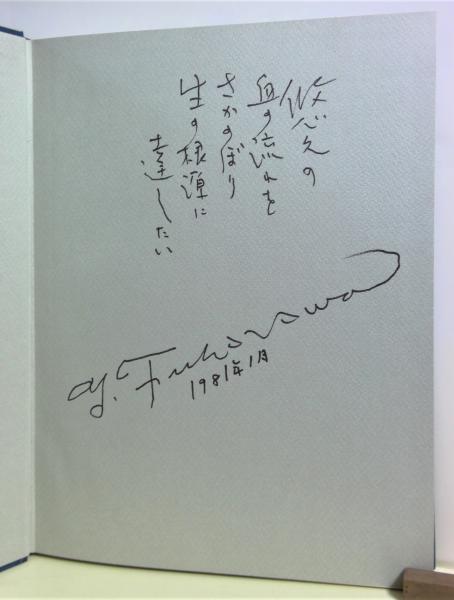 悠久の
血の流れを
さかのぼり
生の根源に
達したい
Y. Fukazawa
1981年1月